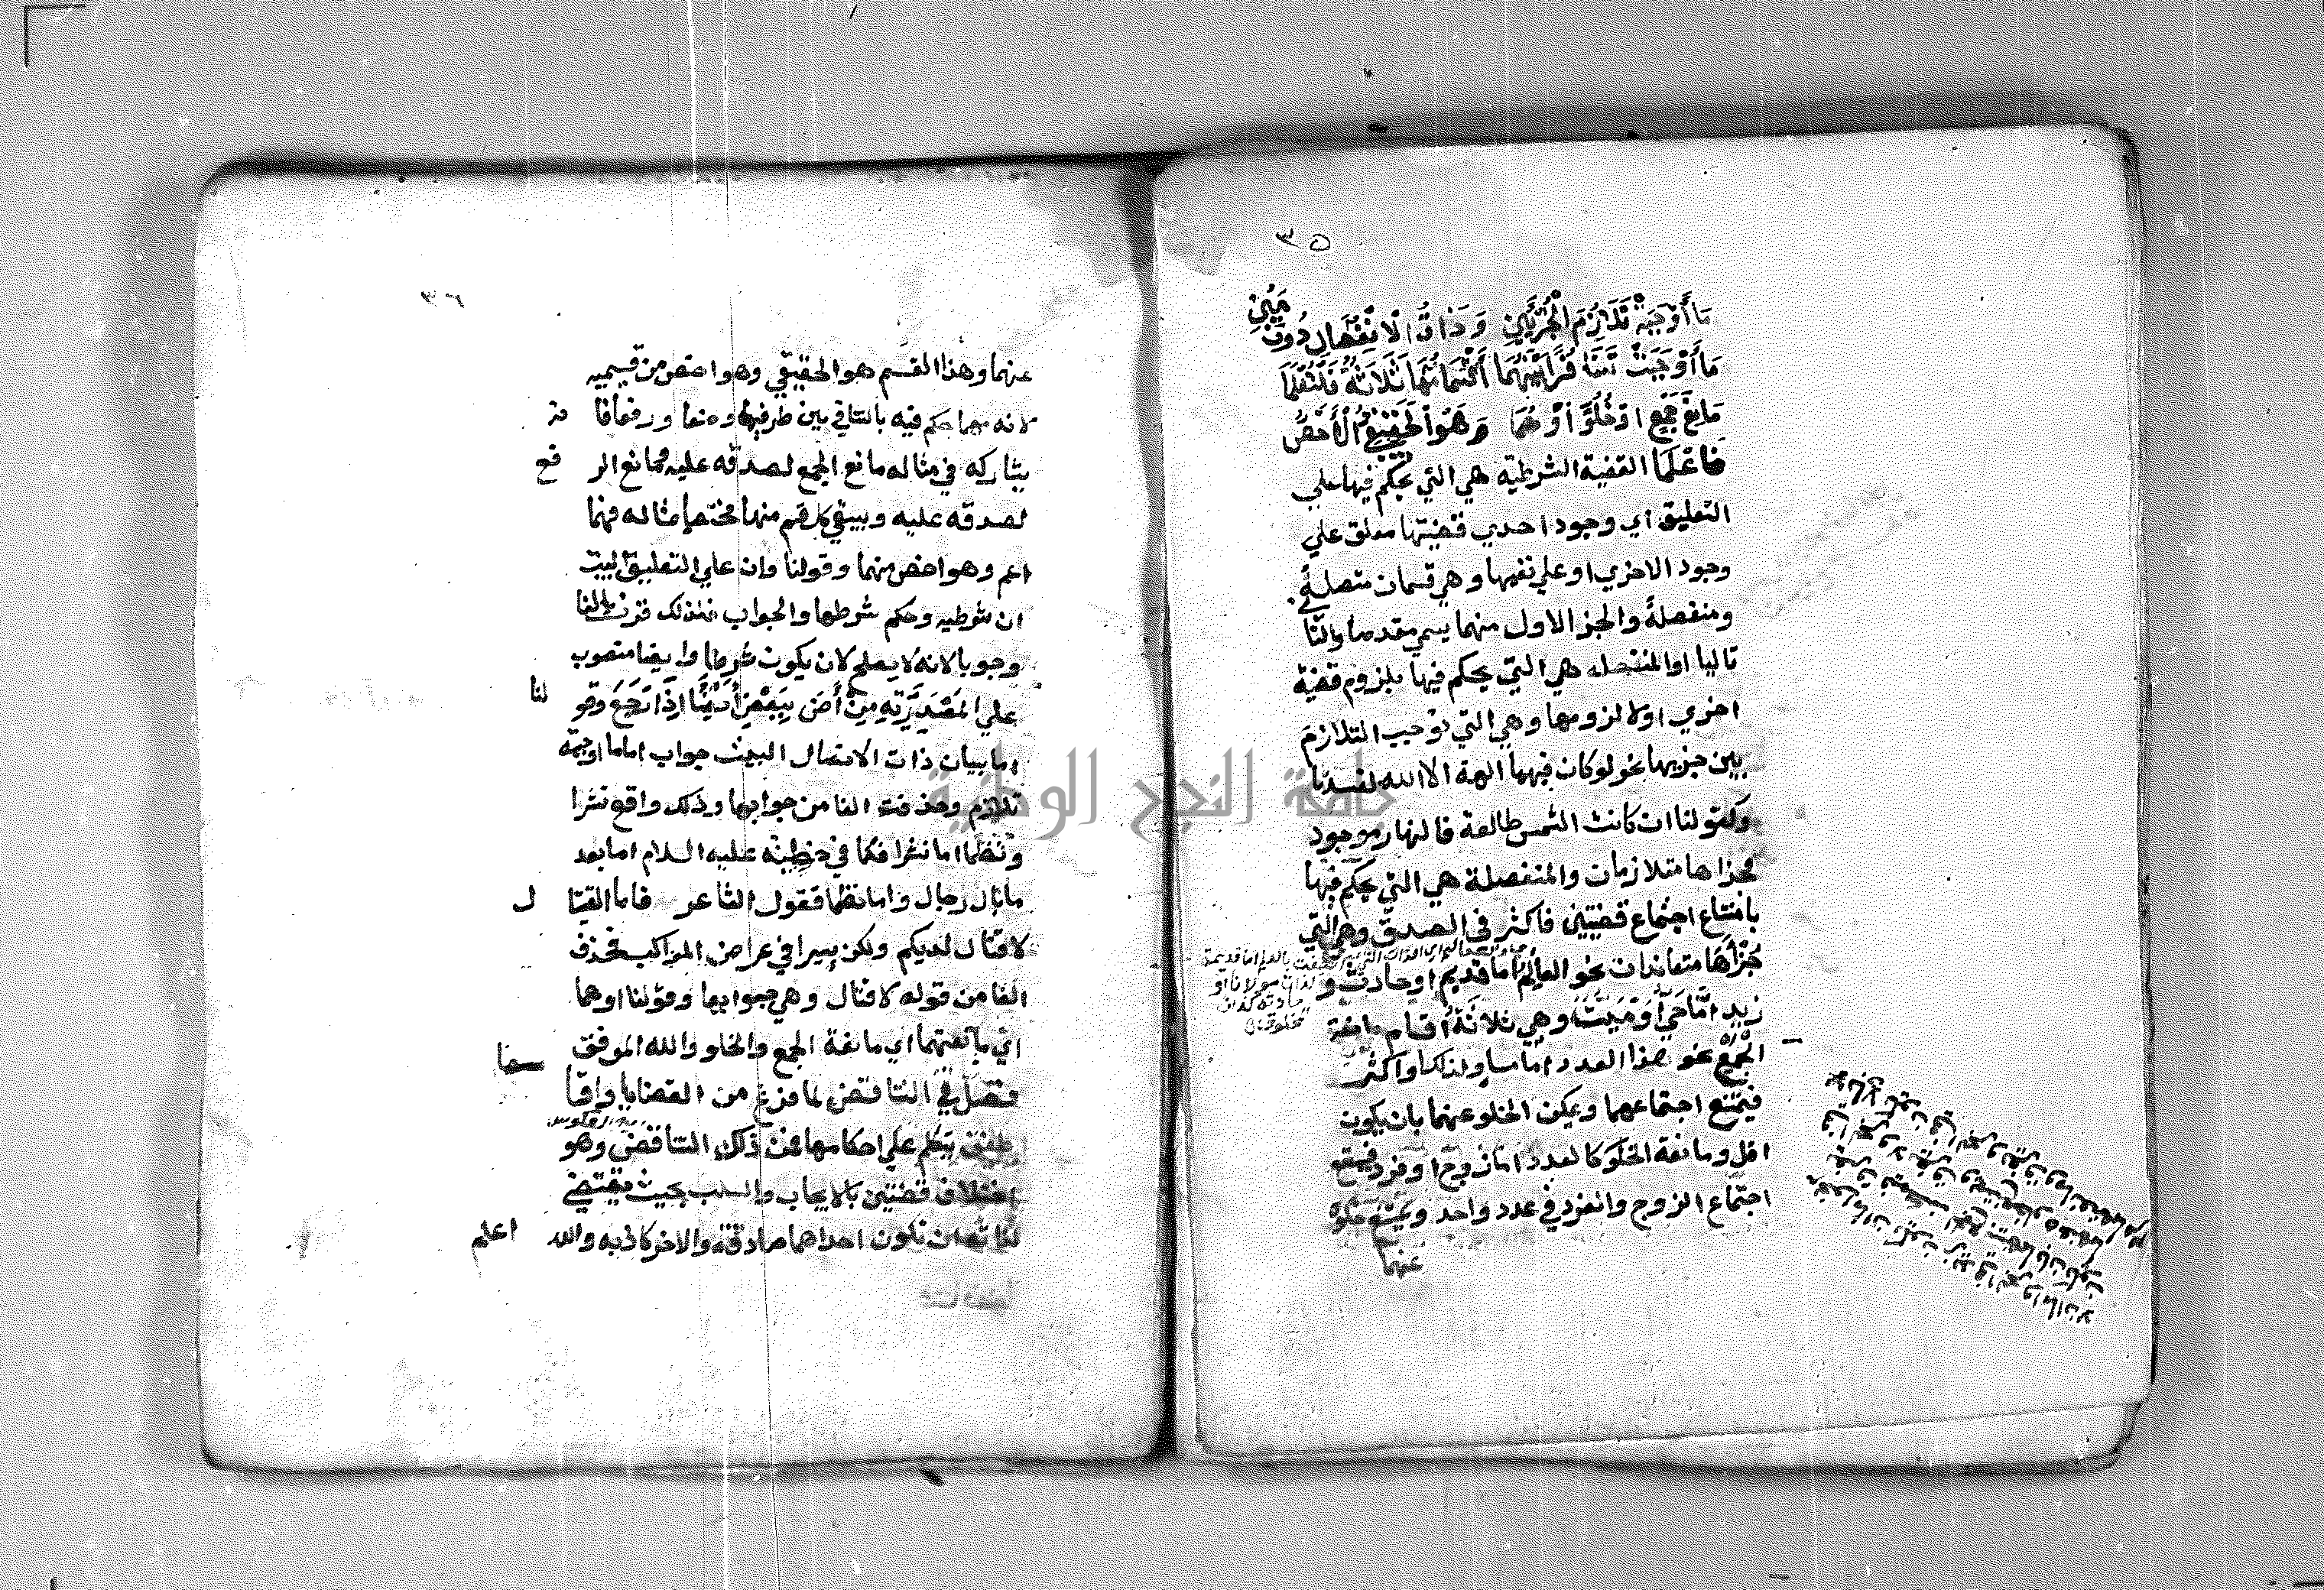 ٣٥
ما أوجبت تلازم الجزئين وذات الانفصال دون مين
ما أوجبت تنافرا بينهما أقسامها ثلاثة فلتعلما
مانع جمع او خلو أو هما وهو الحقيقي الأخص
فاعلما القضية الشرطية هي التي يحكم فيها علي
التعليق اي وجود احدي قضيتها معلق علي
وجود الاخري او علي نفيها وهي قسمان متصلة
ومنفصلة والجز الاول منهما يسمي مقدما والثاني
تاليا اوالمتصله هي التي يحكم فيها بلزوم قضية
اخري اولا لزومها وهي التي توجب التلازم
بين جزيها نحو لوكان فيهما الهة الا الله لفسدتا
وكقولنا ان كانت الشمس طالعة فالنهار موجود
فجزاها متلازمان والمنفصلة هي التي يحكم فيها
بامتناع اجتماع قضيتين فاكثر في الصدق وهي التي
جزأها متعاندان نحو العالم اما قديم اوحادث و
زيد امّا حيّ أو ميت وهي ثلاثة أقسام مانعة
الجمع نحو هذا العدد اما مساو لذلك او اكثر
فيمتنع اجتماعهما ويمكن الخلو عنهما بان يكون
اقل ومانعة الخلو كالعدد اما زوج او فرد فيمتنع
اجتماع الزوج والفرد في عدد واحد ويمتنع خلوه
عنهما
٣٦
عنهما وهذا القسم هو الحقيقي وهو اخص من قسيميه
لانه مهما حكم فيه بالتنافي بين طرفيها وضعا ورفعا فا
يشاركه في مثاله مانع الجمع لصدقه عليه ومانع الرفع
لصدقه عليه ويبقي كل قسم منهما مختصا بمثاله فهما
اعم وهو اخص منهما وقولنا وان علي التعليق البيت
ان شرطيه وحكم شرطها والجواب فلذلك قرن بالفا
وجوبا لانه لا يصلح لان يكون شرطا وايضا منصوب
علي المصدرية من أض يبض أيضا اذا رجع وقولنا
اما بيان ذات الاتصال البيت جواب اما ما اوجبت
تلازم وحذفت الفا من جوابها وذلك واقع نثرا
ونظما اما نثرا فكما في خطبته عليه السلام اما بعد
ما بال رجال واما نظما فقول الشاعر فاما القتال
لاقتال لديكم ولكن سيرا في عراض المواكب فحذف
الفا من قوله لاقتال وهي جوابها وقولنا اوهما
اي مانعتهما اي مانعة الجمع والخلو والله الموفق
فصل في التناقض لما فرغ من القضايا واقسامها
طفق يتكلم علي احكامها فمن ذلك التناقض وهو
اختلاف قضيتين بالايجاب والسلب بحيث يقتضي
لذاته ان تكون احداهما صادقة والاخري كاذبه والله اعلم
جامعة النجاح الوطنية